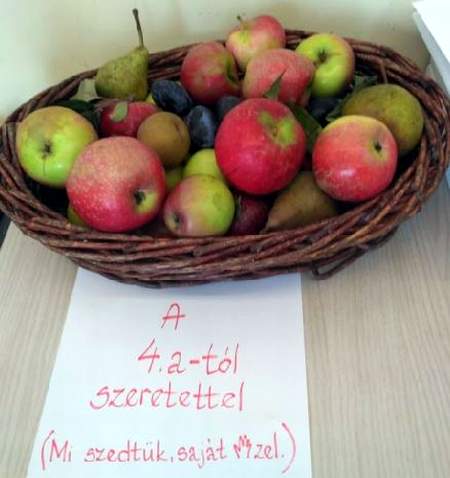 A
4.a-tól
szeretettel
(Mi szedtük, saját kézzel.)